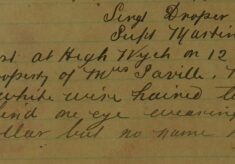 Sergt Draper
Supt Martin
at High Wych on 12
property of Mrs Saville,
white wire haired
and one eye wearing
collar but no name